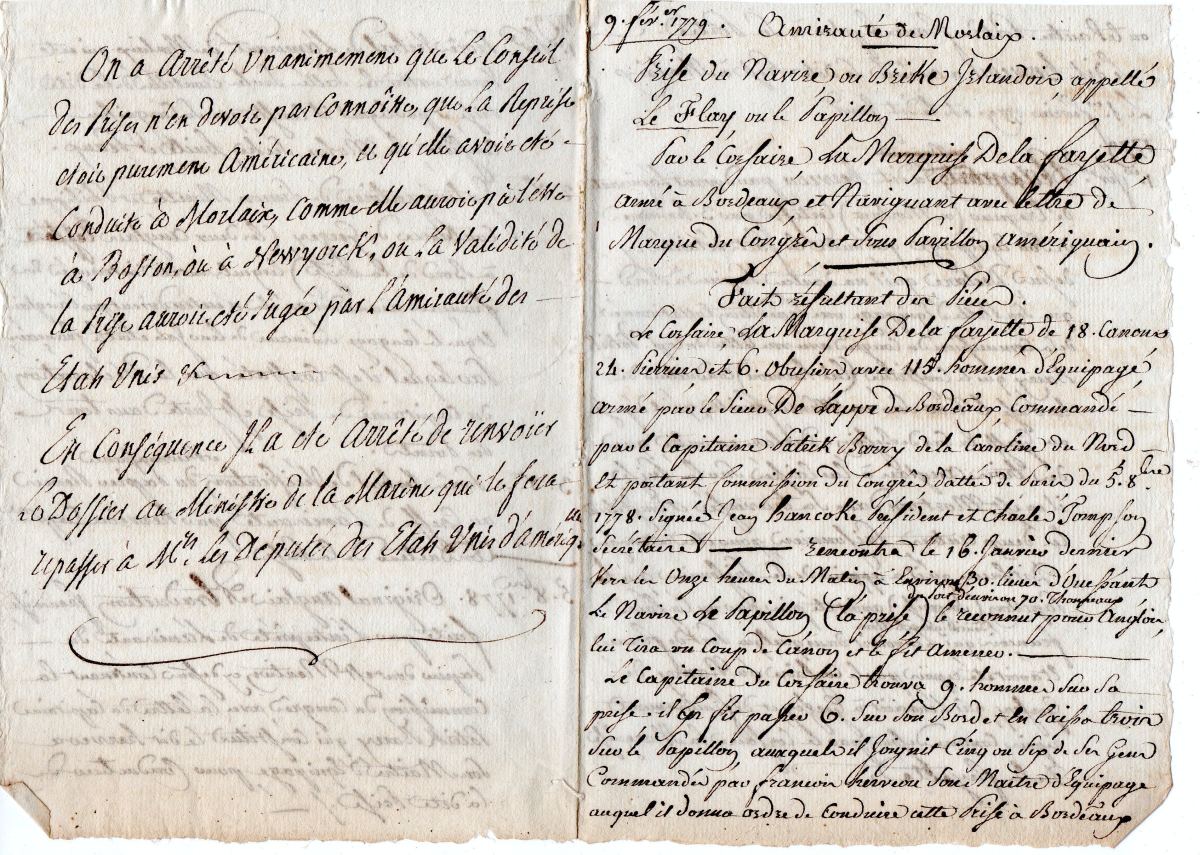 On a Arrêté Unanimement que Le Conseil
des Prises n'en devoit pas Connoître, que La Reprise
etoit purement Américaine, et qu'elle avoit été
Conduite à Morlaix, Comme elle auroit pû l'être
à Boston, ou à Newyorck, ou La Validité de
la Prise auroit été Jugée par L'Amirauté des
Etats Unis &
En Conséquence Il a été Arrêté de renvoïer
Le Dossier au Ministre de la Marine qui le fera
repasser à Mrs. les Députés des Etats Unis d'amériq.
9. fév.er 1779. Amirauté de Morlaix.
Prise du Navire ou Brike Irlandois, appellé
Le Flay ou le Papillon
Par le Corsaire, La Marquise De la fayette
armé à Bordeaux et Naviguant avec lettre de
Marque du Congrès et sous Pavillon Amériquain.
Faits résultant des Pièces.
Le Corsaire, La Marquise De la fayette de 18. Canons
24. Pierriers et 6. Obusiers avec 115. hommes d'Equipage
armé par le Sieur De Lappe de Bordeaux, Commandé
par le Capitaine Patrik Barry de la Caroline du Nord
Et portant Commission du Congrès datté de Paris du 5. 8.bre
1778. Signée Jean hancoke Président et Charles Tompson
Secrétaire rencontra le 16. Janvier dernier
Vers les Onze heures du Matin à Environ 30. lieues d'Ouessant
du port d'environ 70. Thonneaux
Le Navire Le Papillon (la prise) le reconnut pour Anglois,
lui Tira un Coup de Canon et le fit Amener.
Le Capitaine du Corsaire trouva 9. hommes sur sa
prise. il En fit passer 6. sur son Bord et En laissa trois
sur le Papillon, auxquels il Joignit Cinq ou Six de ses Gens
Commandés par francois herveou son Maître d'Equipage
auquel il donna ordre de conduire cette Prise à Bordeaux